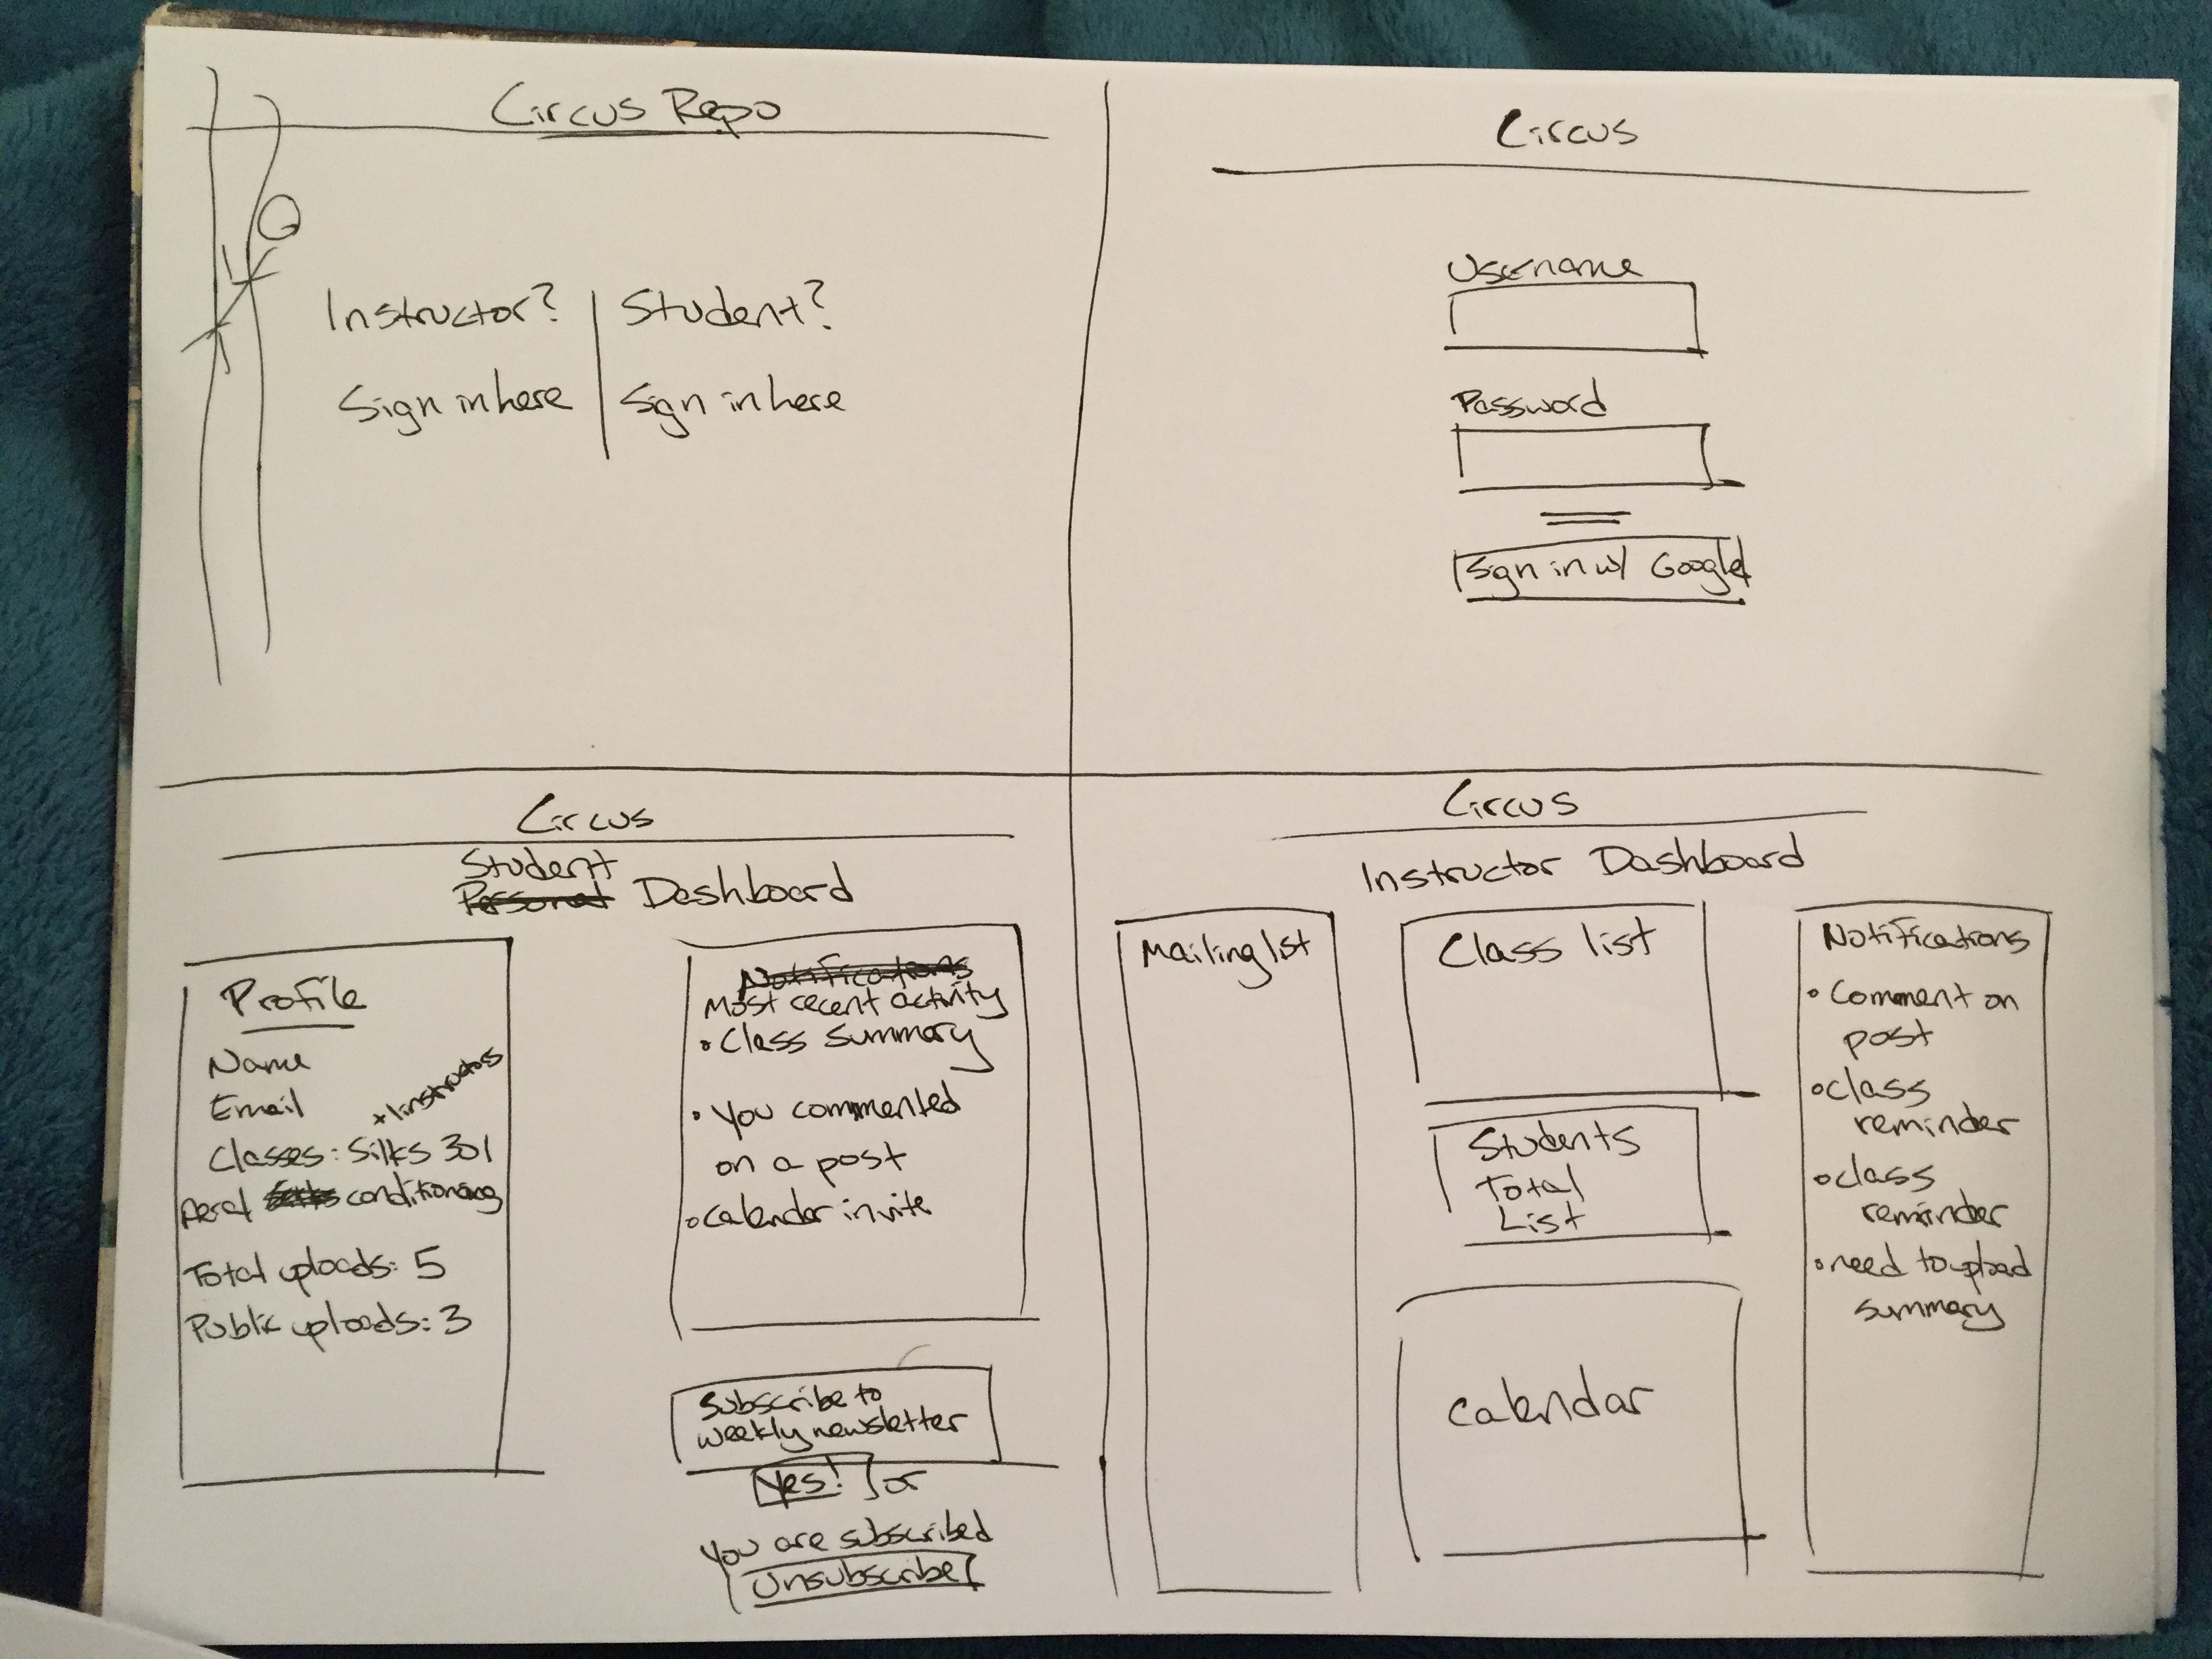 Circus Repo
Instructor? | Student?
Sign in here | Sign in here
Circus
Username
Password
Sign in w/ Google
Circus
Student Dashboard
Profile
Name
Email
Classes: Silks 301
Aeral conditioning
Total uploads: 5
Public uploads: 3
Notifications
Most recent activity
• Class summary
• You commented
on a post
• Calender invite
Subscribe to
weekly newsletter
Yes! or
You are subscribed
Unsubscribe
Circus
Instructor Dashboard
Mailing lst
Class list
Students
Total
List
Calendar
Notifications
• Comment on
post
• Class
reminder
• class
reminder
• need to upload
summary